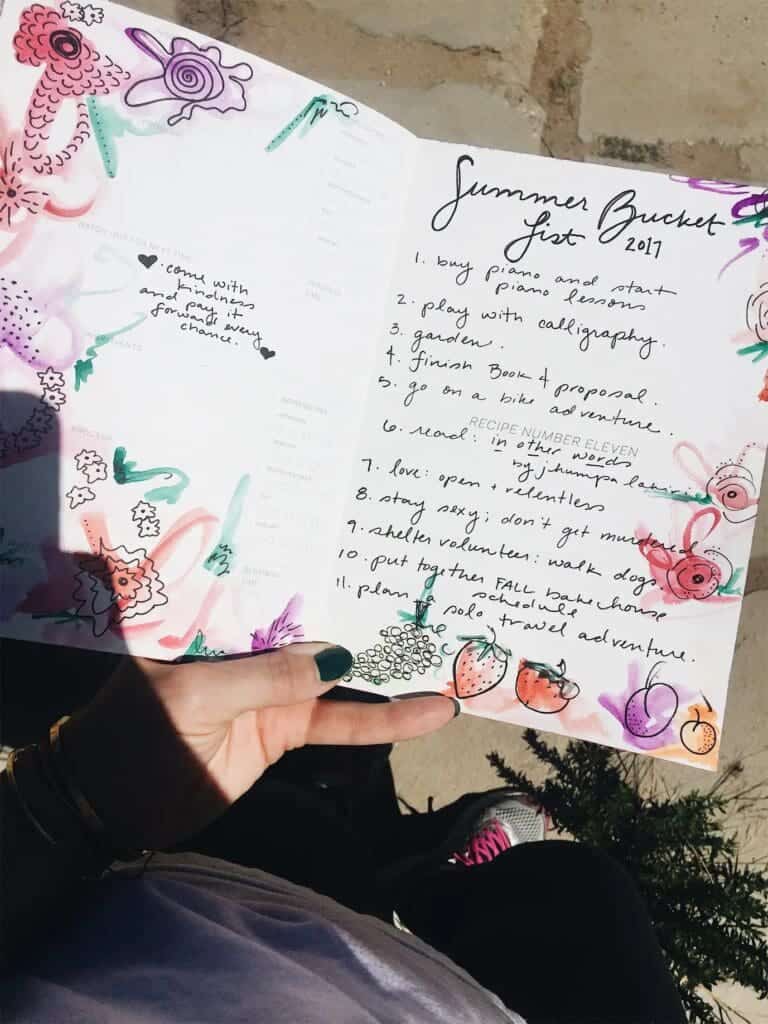 ♥ · come with
kindness
and pay it
forward every
chance. ♥
Summer Bucket
List 2017
1. buy piano and start
piano lessons
2. play with calligraphy.
3. garden.
4. finish Book 4 proposal.
5. go on a bike adventure.
RECIPE NUMBER ELEVEN
6. read: in other words
by jhumpa lahiri
7. love: open + relentless
8. stay sexy; don't get murdered
9. shelter volunteer: walk dogs
10. put together FALL bakehouse
schedule
11. plan a solo travel adventure.